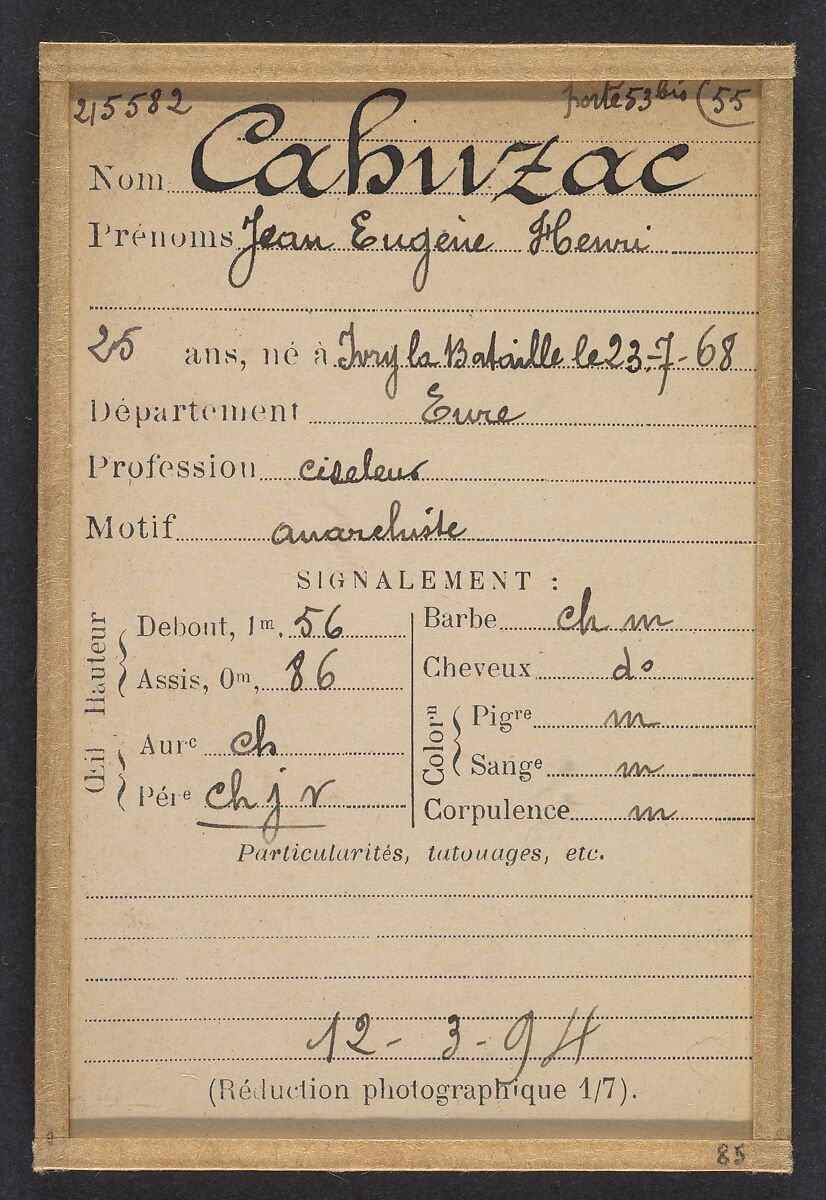 215582 porté 53 bis (55
Nom Cahuzac
Prénoms Jean Eugène Henri
25 ans, né à Ivry la Bataille le 23-7-68
Département Eure
Profession ciseleur
Motif anarchiste
SIGNALEMENT :
Hauteur
Debout, 1m, 56
Assis, 0m, 86
Œil
Aurc ch
Pére ch j v
Barbe ch m
Cheveux do
Colorn
Pigre m
Sange m
Corpulence m
Particularités, tatouages, etc.
12-3-94
(Réduction photographique 1/7).
85